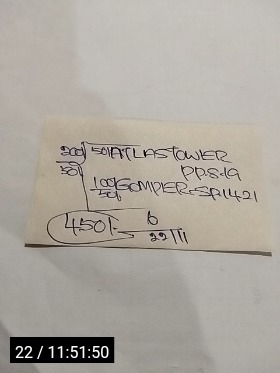 200/50 50/ATLASTOWER
PPS-19
100/50 GOMPIER-SR1421
450/- 6
22/11
22 / 11:51:50